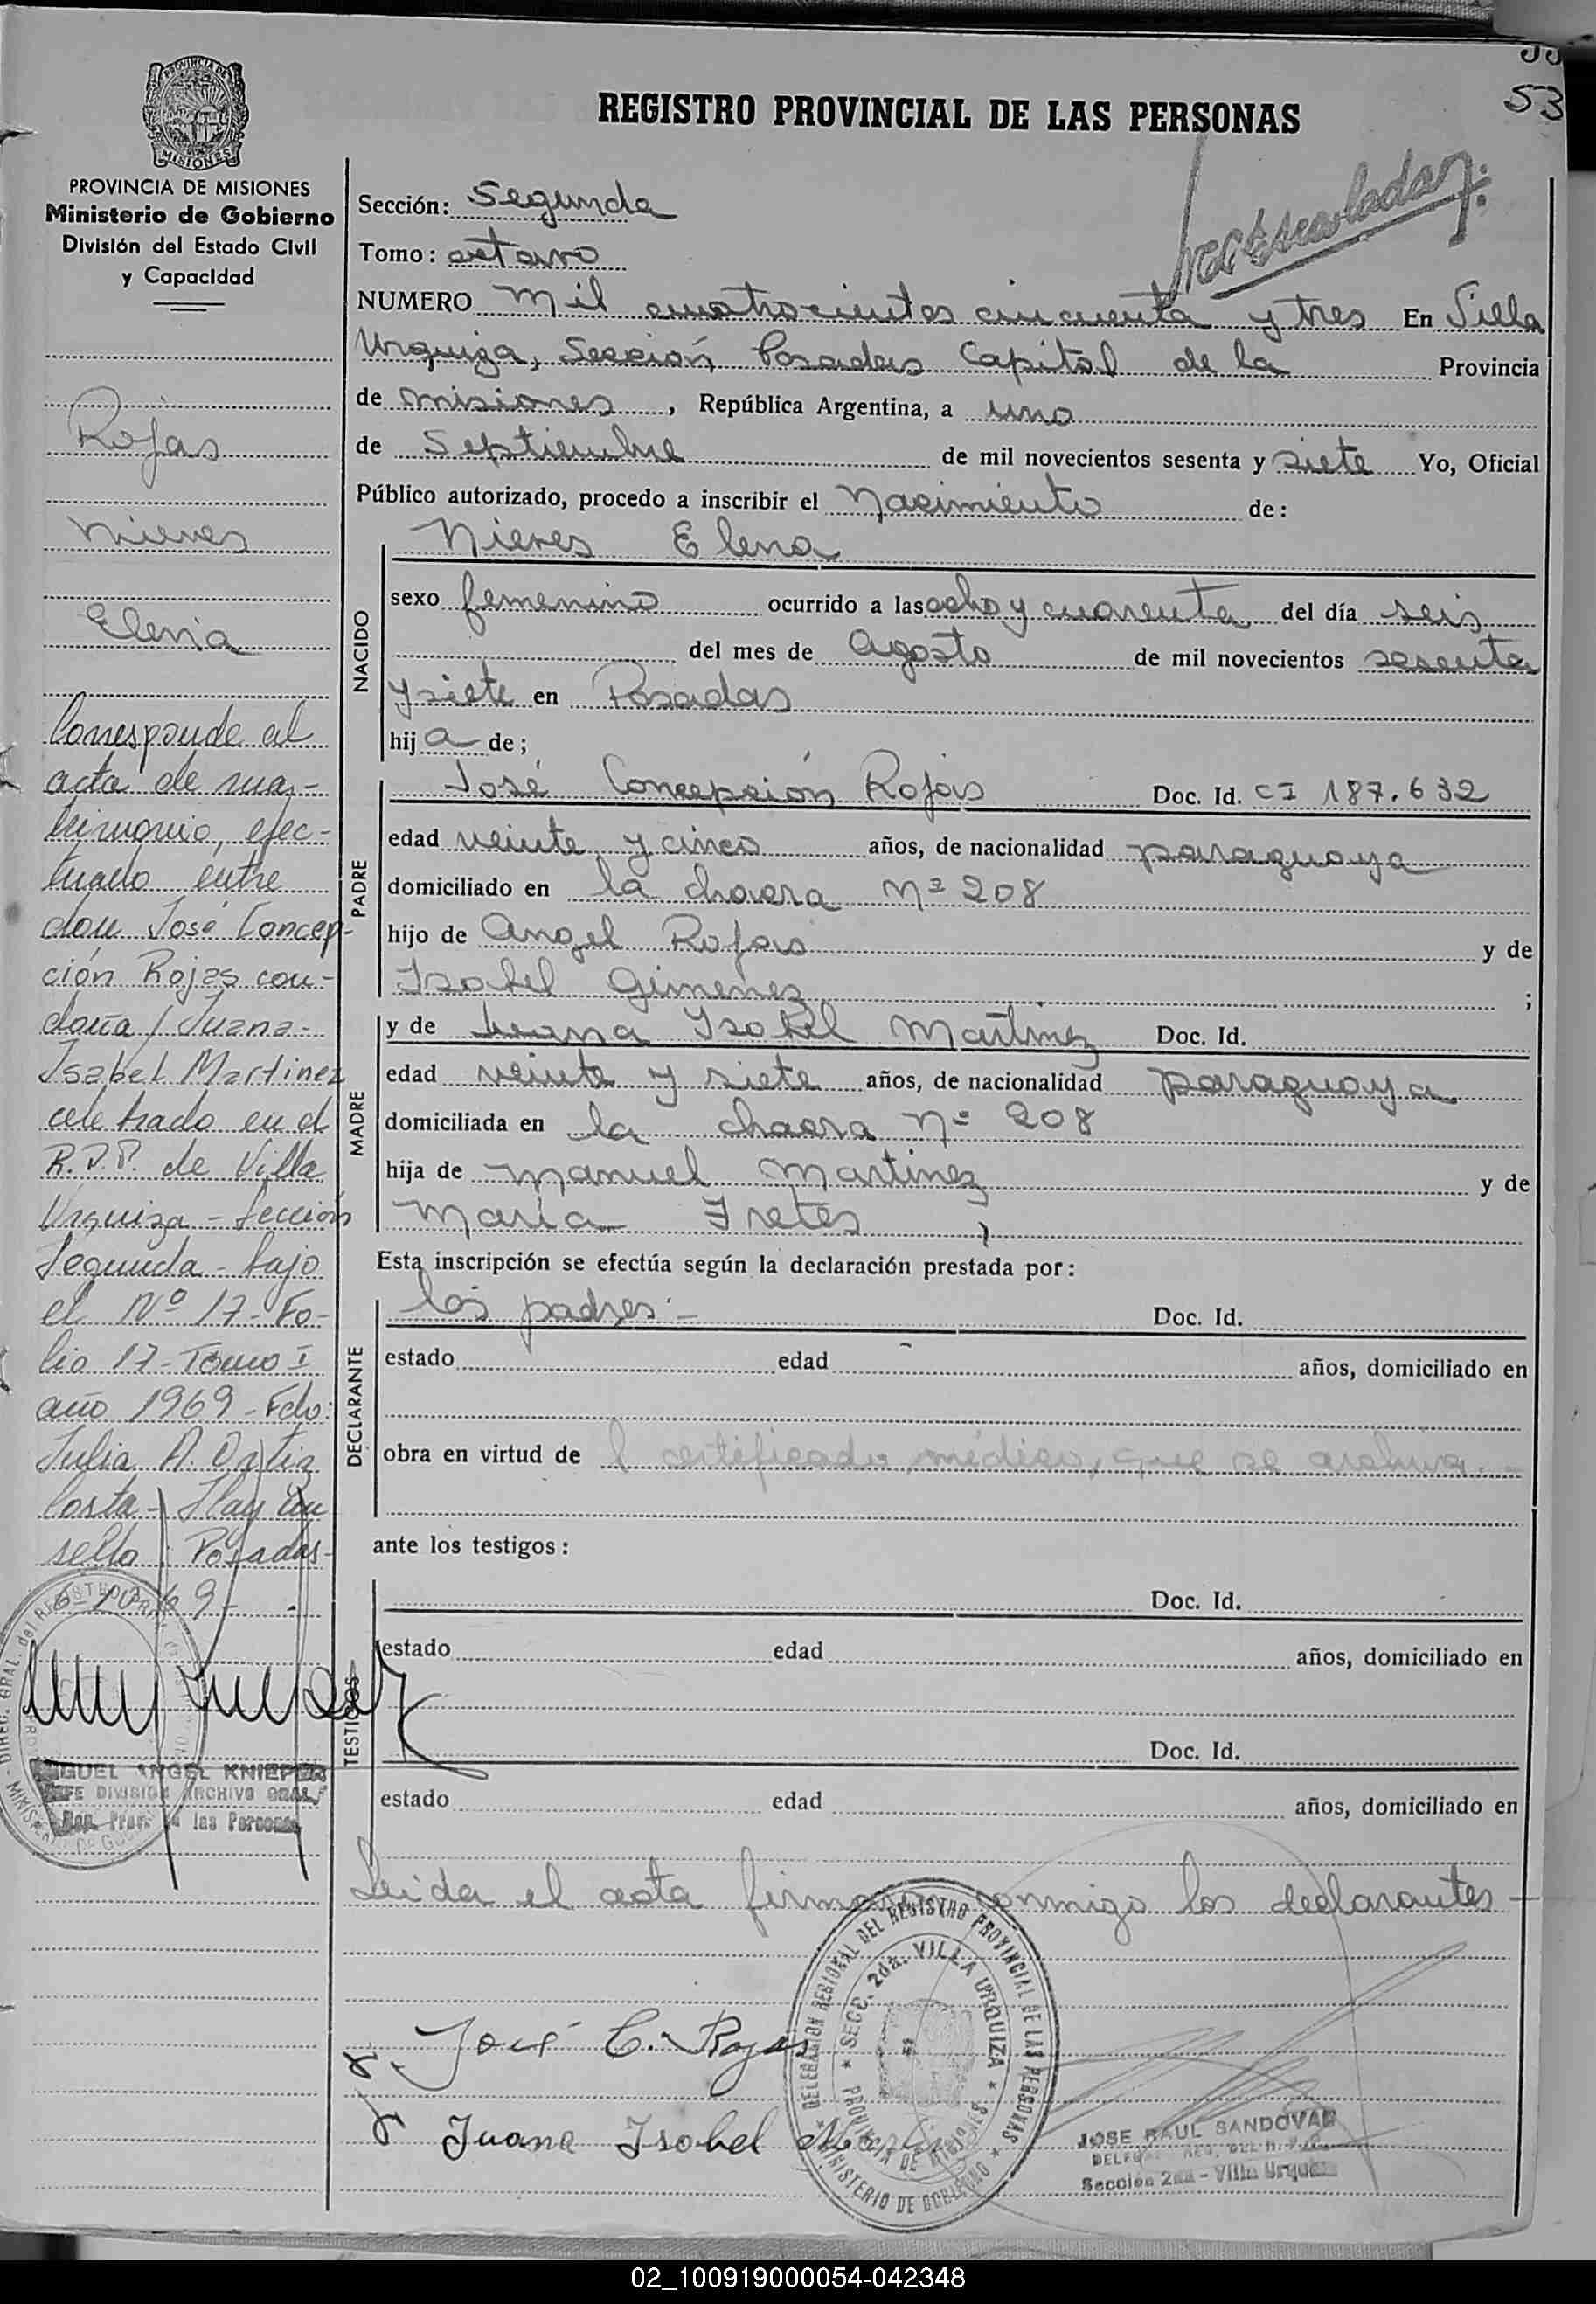 53
REGISTRO PROVINCIAL DE LAS PERSONAS
PROVINCIA DE MISIONES
Ministerio de Gobierno
División del Estado Civil
y Capacidad
Rojas
Nieves
Elena
Corresponde al
acta de ma-
trimonio, efec-
tuado entre
don José Concep-
ción Rojas con
doña Juana
Isabel Martinez
celebrado en el
R.P.P. de Villa
Urquiza - Sección
Segunda - bajo
el Nº 17 - Fo-
lio 17 - Tomo I
año 1969 - Fdo:
Julia A. Ortiz
Costa - Hay un
sello: Posadas
MIGUEL ANGEL KNIEPER
JEFE DIVISION ARCHIVO GRAL.
Reg. Prov. de las Personas
Sección: Segunda
Tomo: octavo
NUMERO Mil cuatrocientos cincuenta y tres En Villa
Urquiza, Sección Posadas Capital de la Provincia
de misiones, República Argentina, a uno
de Septiembre de mil novecientos sesenta y siete Yo, Oficial
Público autorizado, procedo a inscribir el Nacimiento de:
Nieves Elena
NACIDO
sexo femenino ocurrido a las ocho y cuarenta del día seis
del mes de Agosto de mil novecientos sesenta
y siete en Posadas
hij a de;
PADRE
José Concepción Rojas Doc. Id. CI 187.632
edad veinte y cinco años, de nacionalidad paraguaya
domiciliado en la chacra Nº 208
hijo de Angel Rojas y de
Isabel Gimenez ;
MADRE
y de Juana Isabel Martinez Doc. Id.
edad veinte y siete años, de nacionalidad paraguaya
domiciliada en la chacra nº 208
hija de Manuel Martinez y de
Maria Fretes
Esta inscripción se efectúa según la declaración prestada por:
DECLARANTE
los padres.- Doc. Id.
estado edad años, domiciliado en
obra en virtud de l certificado médico, que se archiva.-
ante los testigos:
TESTIGOS
Doc. Id.
estado edad años, domiciliado en
Doc. Id.
estado edad años, domiciliado en
Leida el acta firmaron conmigo los declarantes
José C. Rojas
Juana Isabel
DELEGACION REGIONAL DEL REGISTRO PROVINCIAL DE LAS PERSONAS
SECC. 2da. VILLA URQUIZA
PROVINCIA DE MISIONES
MINISTERIO DE GOBIERNO
JOSE RAUL SANDOVAL
Sección 2da - Villa Urquiza
02_100919000054-042348